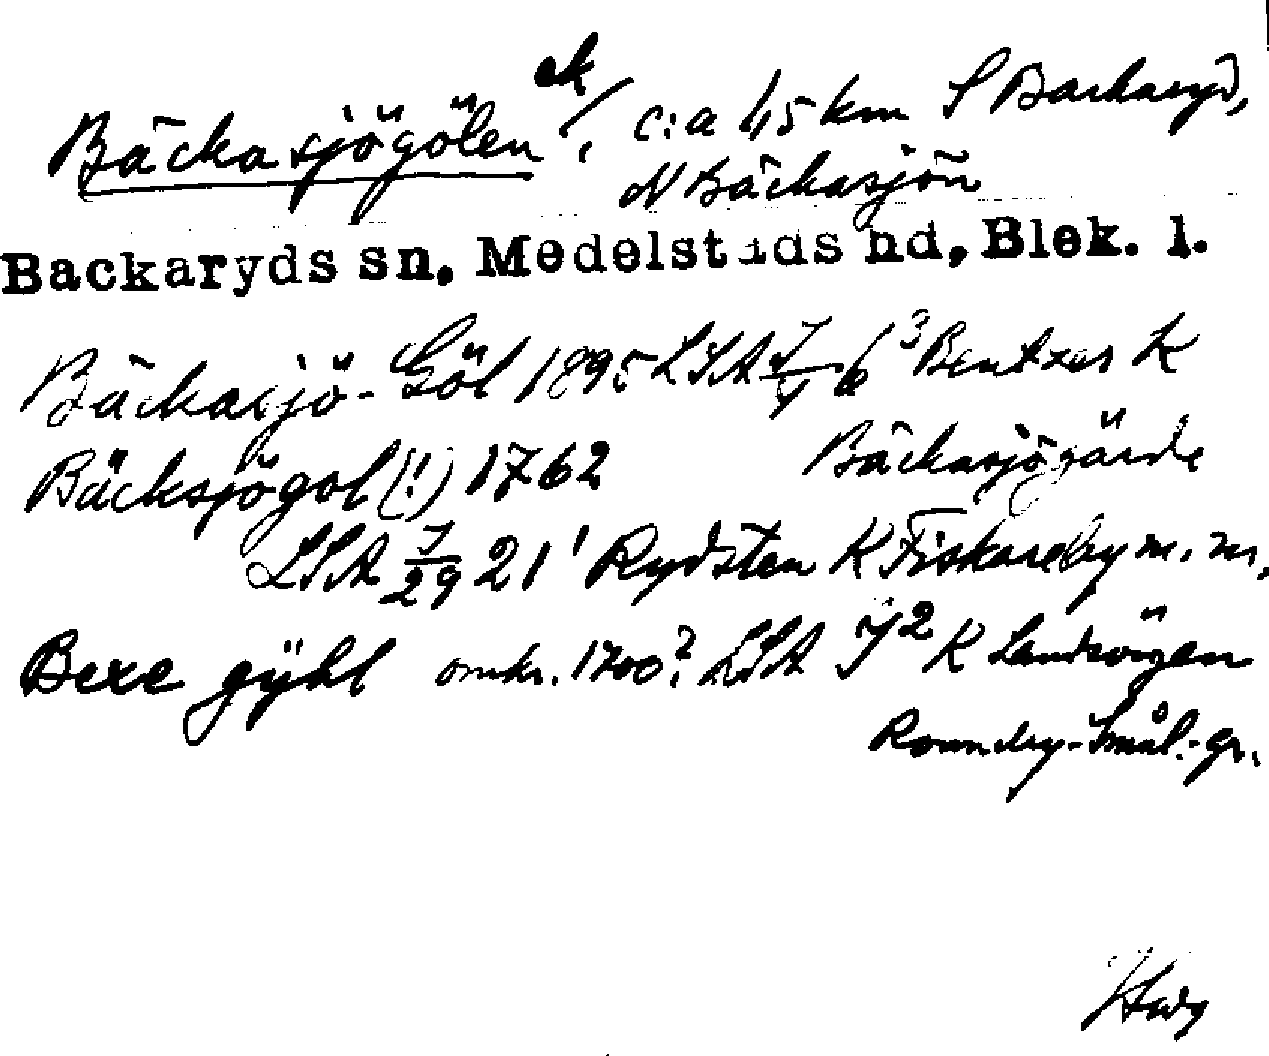 Bäckasjögölen ek/, c:a 1,5 km S Backaryd,
N Bäckasjön
Backaryds sn, Medelstads hd, Blek. l.
Bäckasjö-Göl 1895 LSA 6³ Bentzes K
Bäckasjögärde
Bäcksjögol (!) 1762
LSA 7/29 21' Rydsten K Fiskareby m. m.
Bexe gÿhl omkr. 1700? LSA K Landsvägen
Ronneby-Smål.-gr.